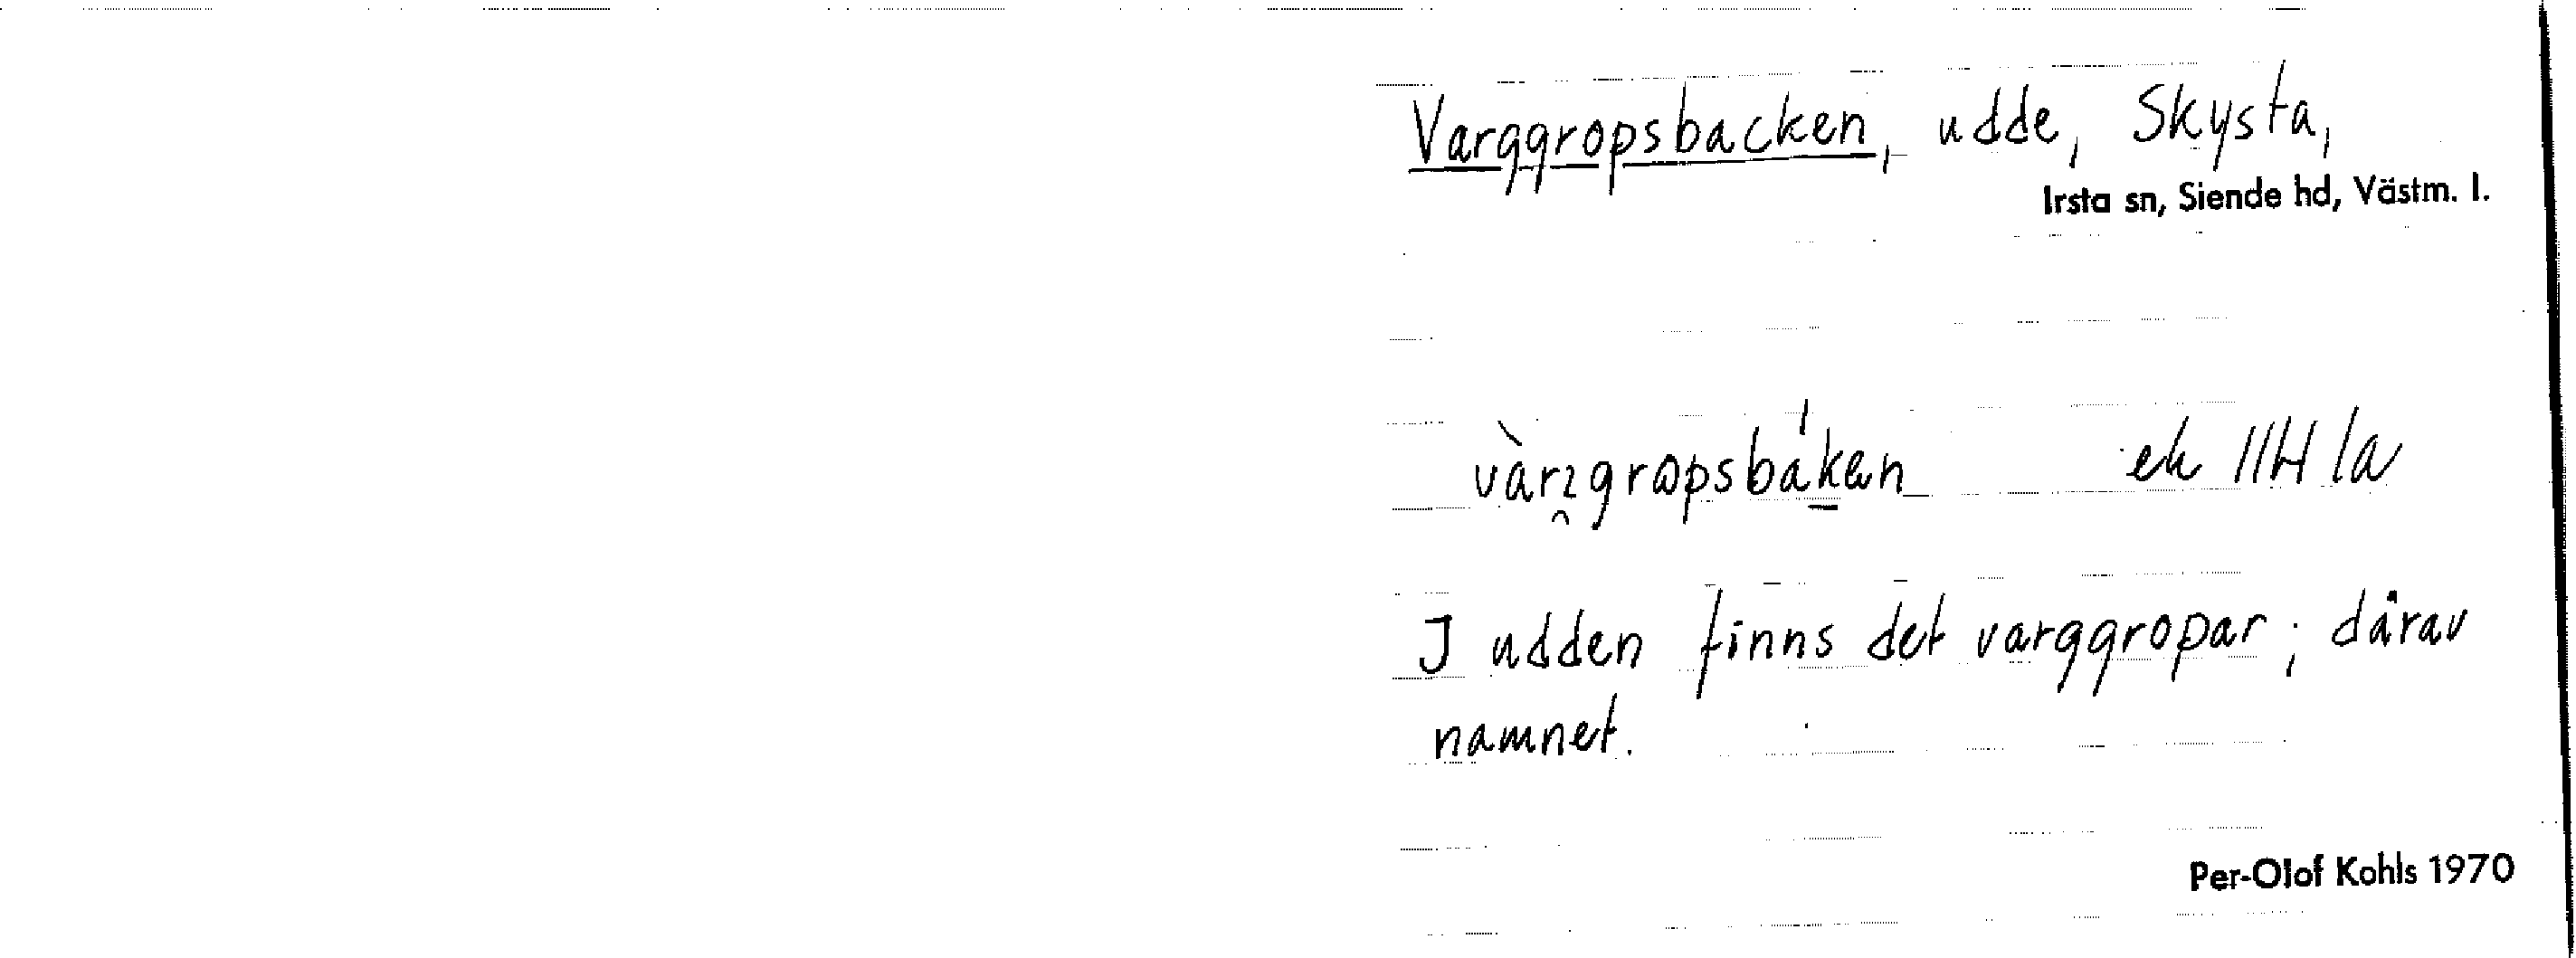 Varggropsbacken, udde, Skysta,
Irsta sn, Siende hd, Västm. l.
ek 11H 1a
I udden finns det varggropar; därav
namnet.
Per-Olof Kohls 1970